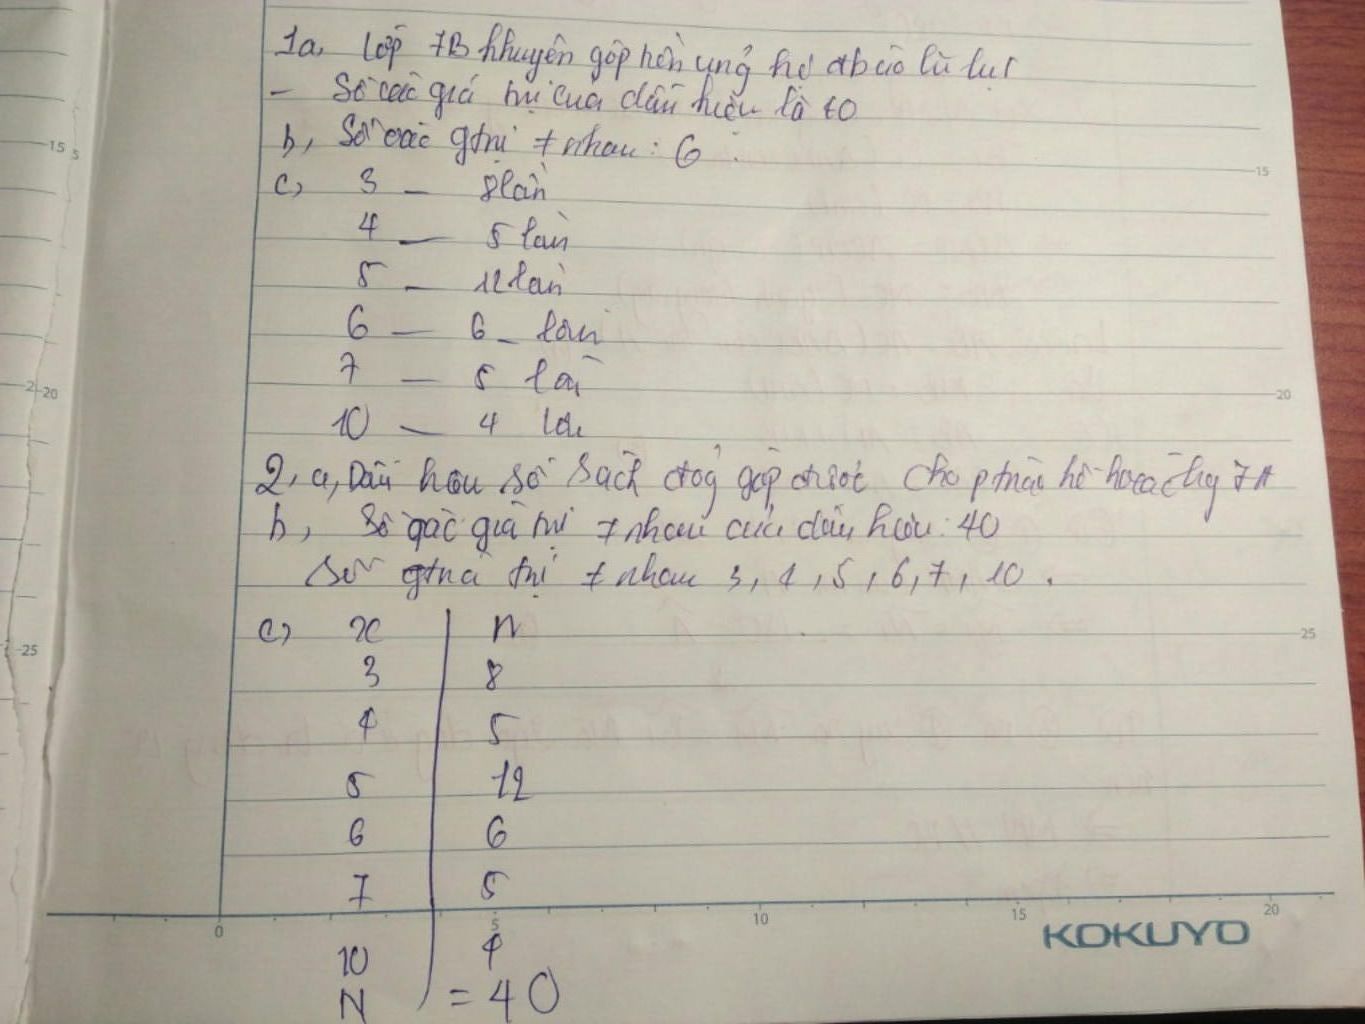 1a, Lớp 7B khuyên góp tiền ủng hộ đb bão lũ lụt
- Số các giá trị của dấu hiệu là 40
b, Số các gtrị ≠ nhau : 6
c, 3 - 8 lần
4 - 5 lần
5 - 12 lần
6 - 6 - lần
7 - 5 lần
10 - 4 lần
2, a, Dấu hiệu số sách góp được cho 7A
b, Số các giá trị ≠ nhau của dấu hiệu : 40
trị ≠ nhau 3, 4, 5, 6, 7, 10 .
c, x n
3 8
4 5
5 12
6 6
7 5
10 4
N = 40
15
15
20
20
25
25
0 5 10 15 20
KOKUYO